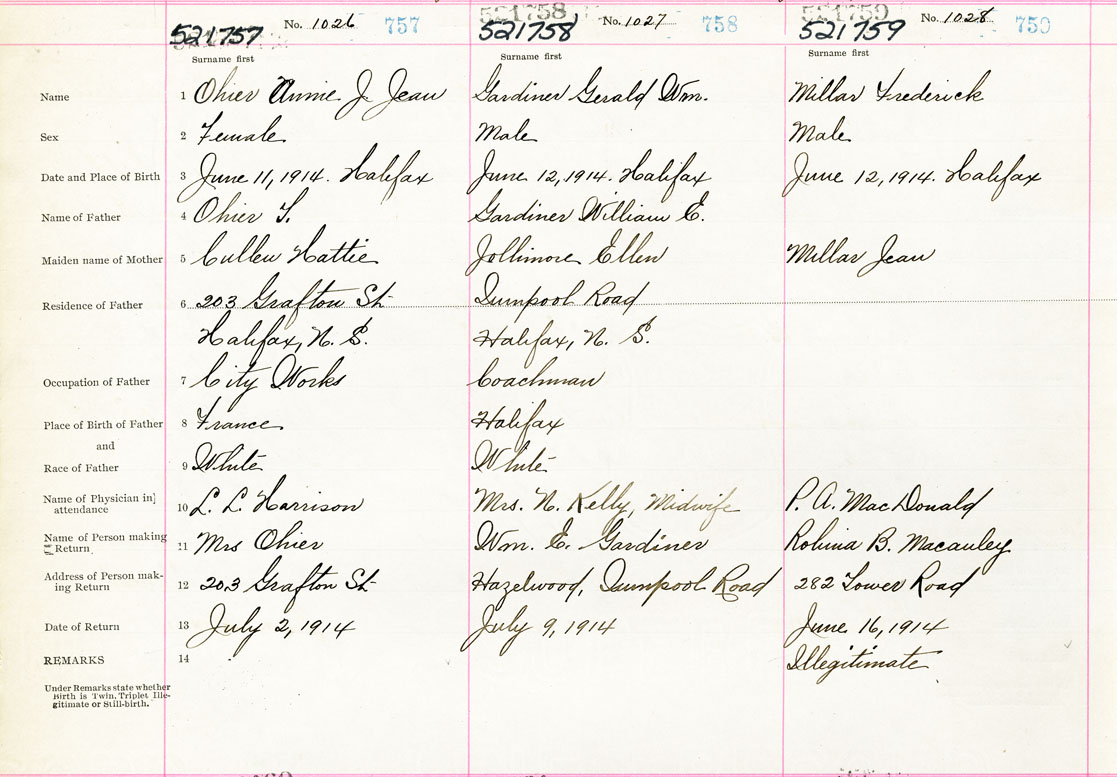 521758 521759
No. 1026 757 No. 1027 758 No. 1028 759
521757 521758 521759
Surname first Surname first Surname first
Name 1 Ohier Annie J. Jean Gardiner Gerald Wm. Millar Frederick
Sex 2 Female Male Male
Date and Place of Birth 3 June 11, 1914. Halifax June 12, 1914. Halifax June 12, 1914. Halifax
Name of Father 4 Ohier T. Gardiner William E.
Maiden name of Mother 5 Cullen Hattie Jollimore Ellen Millar Jean
Residence of Father 6 203 Grafton St. Dunpool Road
Halifax, N. S. Halifax, N. S.
Occupation of Father 7 City Works Coachman
Place of Birth of Father 8 France Halifax
and
Race of Father 9 White White
Name of Physician in} attendance 10 L. L. Harrison Mrs. N. Kelly, Midwife P. A. MacDonald
Name of Person making Return 11 Mrs Ohier Wm. E. Gardiner Robina B. Macauley
Address of Person mak-
ing Return 12 203 Grafton St. Hazelwood, Dunpool Road 282 Tower Road
Date of Return 13 July 2, 1914 July 9, 1914 June 16, 1914
REMARKS 14 Illegitimate
Under Remarks state whether
Birth is Twin, Triplet Ille-
gitimate or Still-birth.